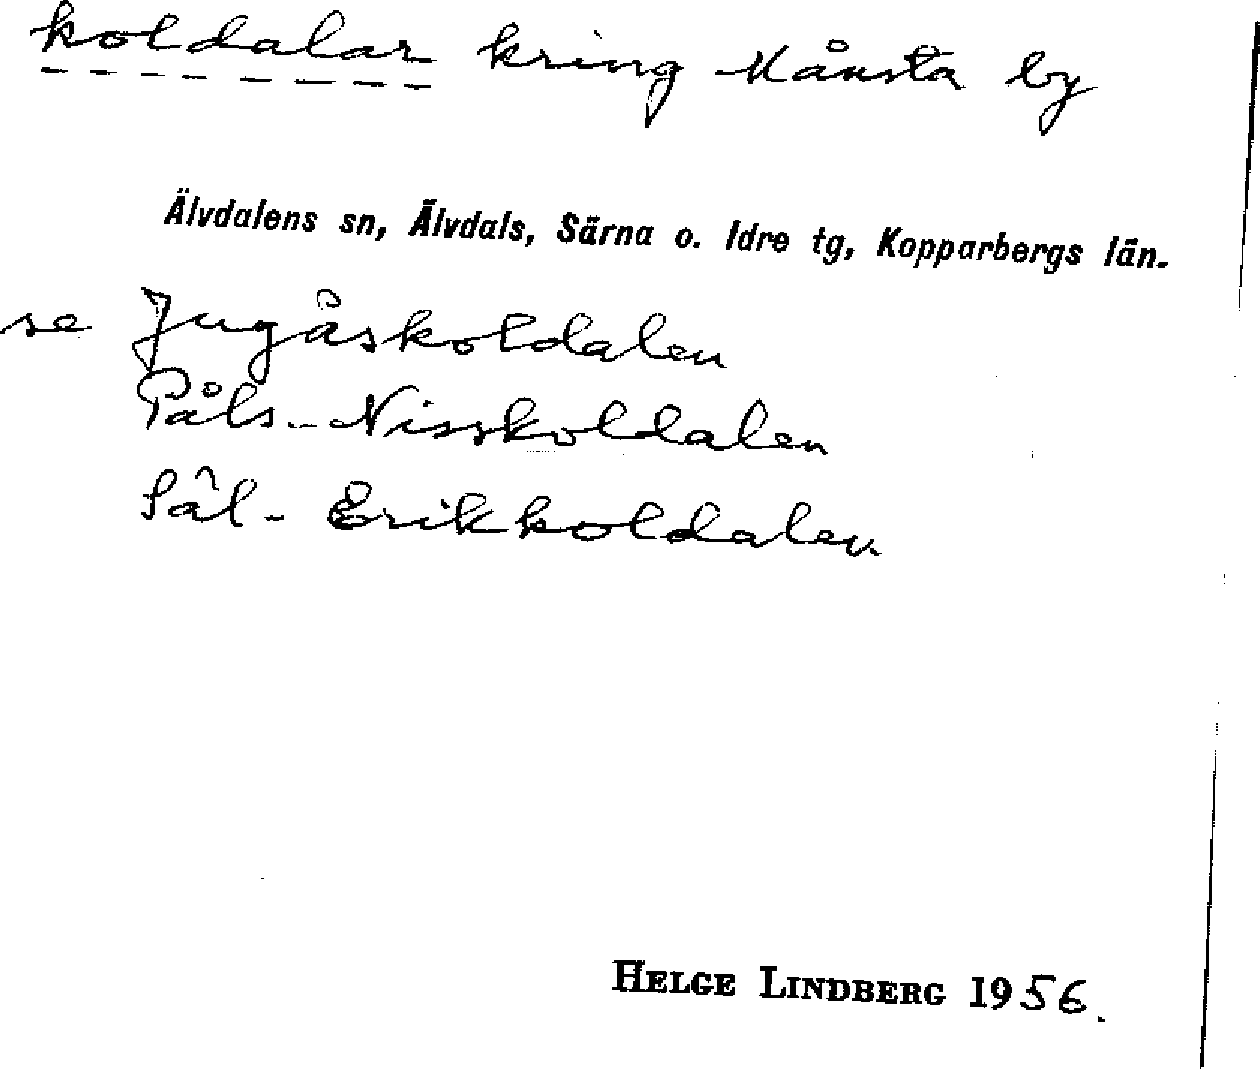 koldalar kring Månsta by
Älvdalens sn, Älvdals, Särna o. Idre tg, Kopparbergs län.
se Jugåskoldalen
Påls-Nisskoldalen
Sâl-Erikkoldalen
HELGE LINDBERG 1956.